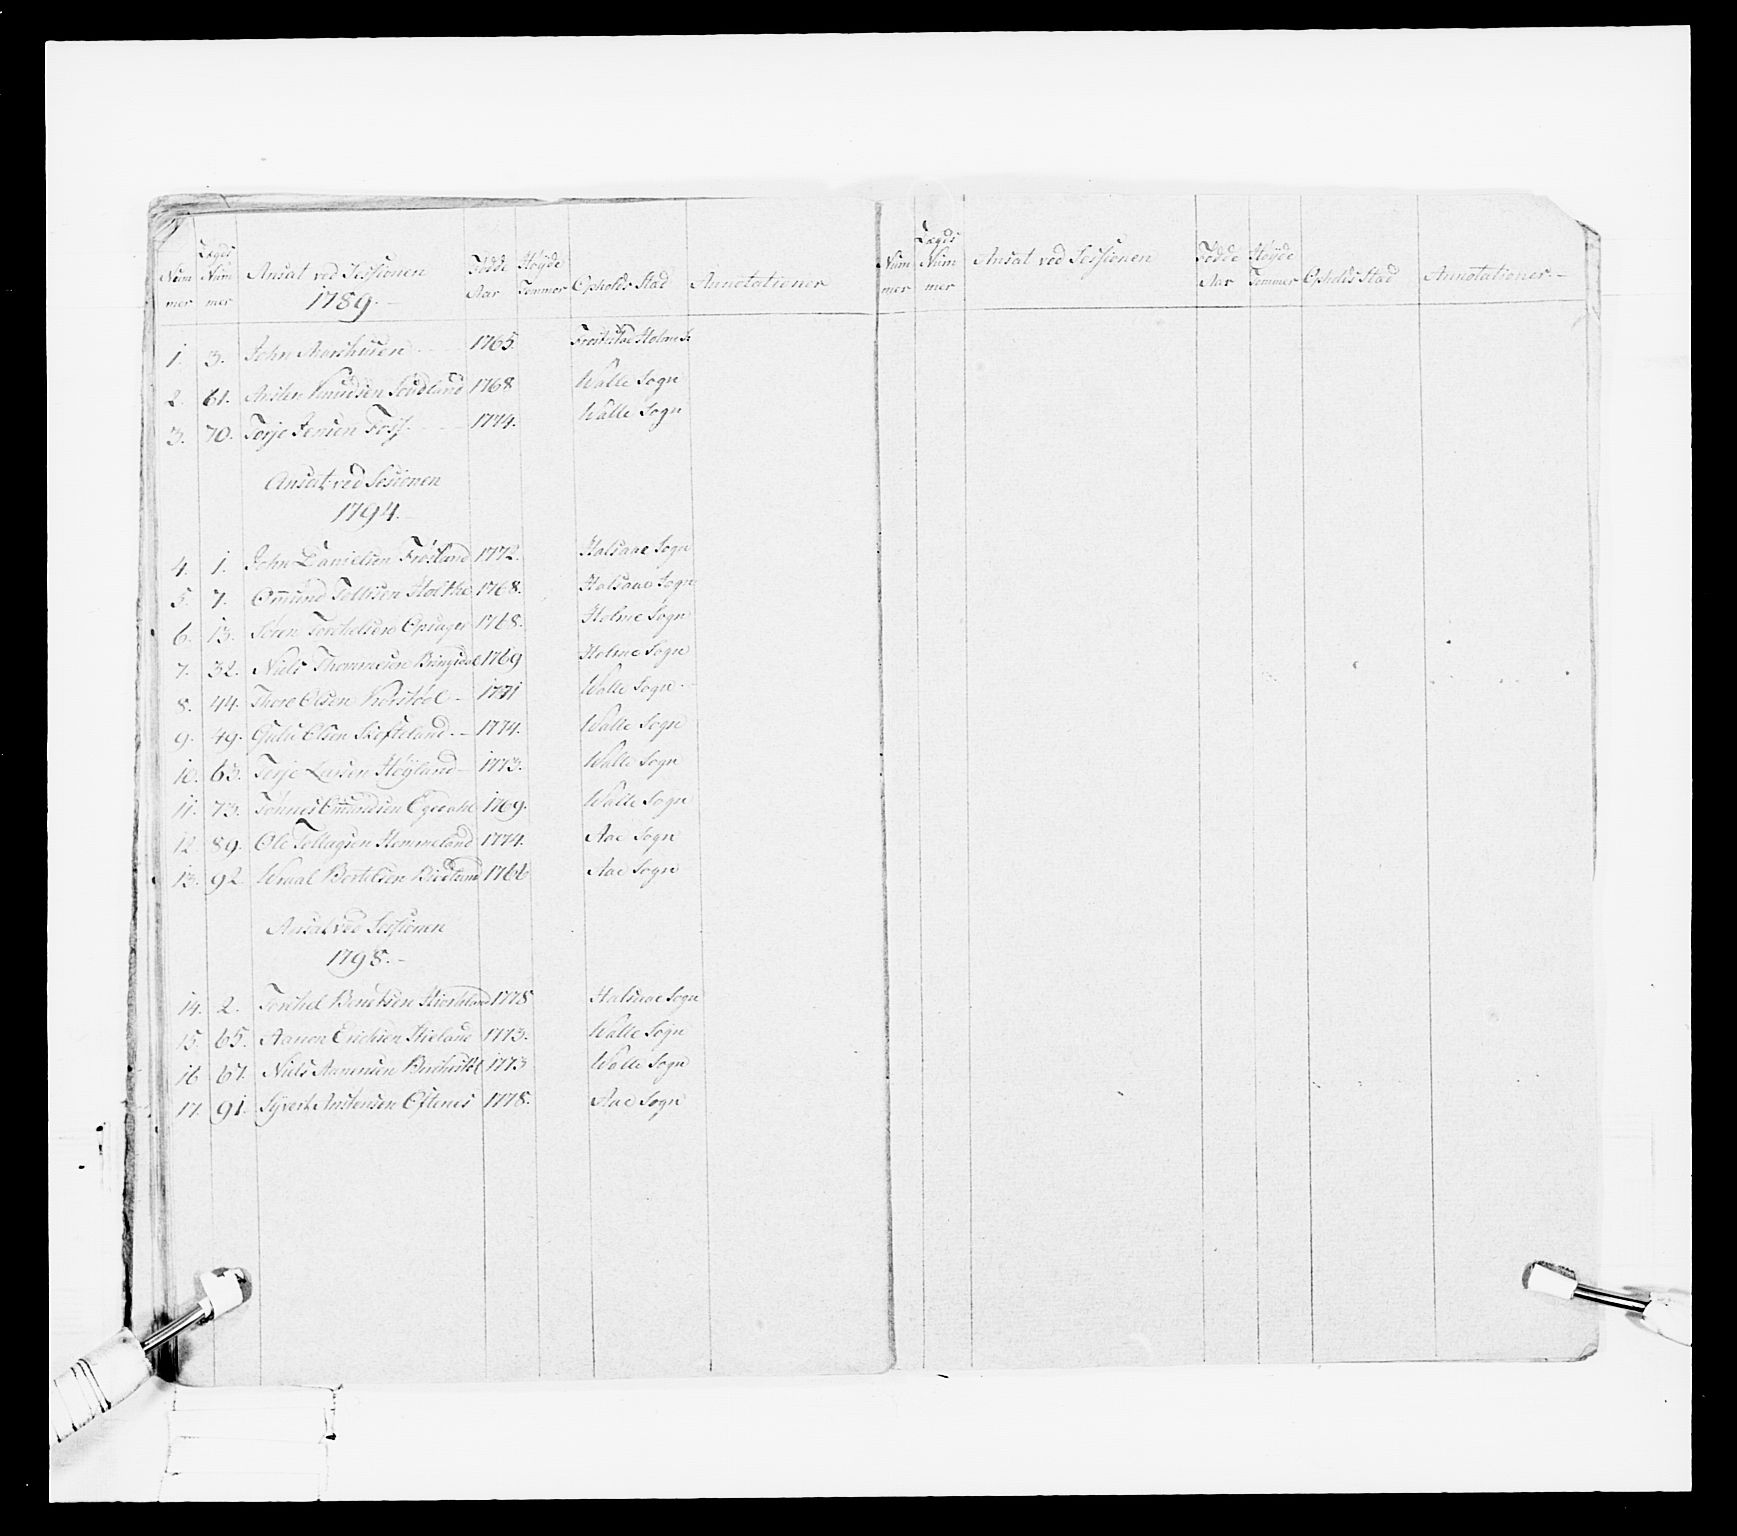 Num mer | Lægds Num mer | Ansat ved Sessionen 1789. | Fødde Aar | Høyde Tommer | Opholds Stad | Annotationer
1. 3. John Aareksen 1765. Holme S.
2. 61. Asten Knudsen 1768 Walle Sogn
3. 70. Torje Jensen Foss 1774. Walle Sogn
Ansat ved Sesionen
1794.
4. 1. John Danielsen Frøsland 1772. Halsaae Sogn
5. 7. Omund Tollisen Holthe 1768. Halsaae Sogn
6. 13. Søren Torchelsen 1768. Holme Sogn
7. 32. Niels Thommesen 1769 Holme Sogn
8. 44. Thore Olsen 1771 Walle Sogn
9. 49. Olsen Skofteland 1774. Walle Sogn
10. 63. Torje Larsen Høyland 1773. Walle Sogn
11. 73. Tønnes Omundsen Egedahl 1769. Walle Sogn
12. 89. Ole Tollagsen Hemmeland 1774. Aae Sogn
13. 92. Wraal Bertelsen 1766 Aae Sogn
Ansat ved Sessionen
1798.
14. 2. Torchel 1778 Halsaae Sogn
15. 65. Aanon Erichsen 1773. Walle Sogn
16 67. Niels Aanensen 1773 Walle Sogn
17. 91. Syvert Anstensen Oftenes 1778. Aae Sogn
Num mer | Lægds Num mer | Ansat ved Sessionen | Fødde Aar | Høyde Tommer | Opholds Stad | Annotationer